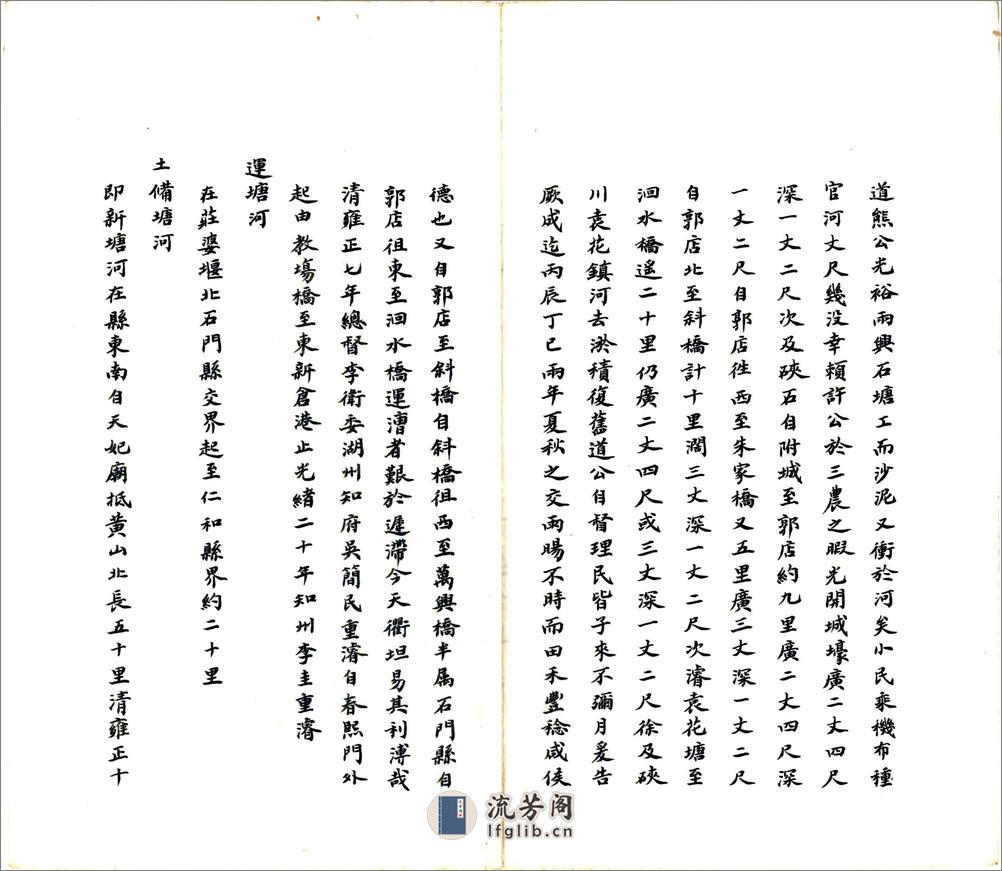 道熊公光裕兩興石塘工而沙泥又衝於河矣小民乘機布種
官河丈尺幾没幸賴許公於三農之暇光開城壕廣二丈四尺
深一丈二尺次及硤石自附城至郭店約九里廣二丈四尺深
一丈二尺自郭店徃西至朱家橋又五里廣三丈深一丈二尺
自郭店北至斜橋計十里濶三丈深一丈二尺次濬袁花塘至
洄水橋遥二十里仍廣二丈四尺或三丈深一丈二尺徐及硤
川袁花鎮河去淤積復舊道公自督理民皆子來不彌月爰告
厥成迄丙辰丁巳兩年夏秋之交雨暘不時而田禾豐稔咸侯
德也又自郭店至斜橋自斜橋徂西至萬興橋半属石門縣自
郭店徂東至洄水橋運漕者艱於遲滯今天衢坦易其利溥哉
清雍正七年總督李衛委湖州知府吳簡民重濬自春熙門外
起由教塲橋至東新倉港止光緒二十年知州李圭重濬
運塘河
在莊婆堰北石門縣交界起至仁和縣界約二十里
土備塘河
即新塘河在縣東南自天妃廟抵黃山北長五十里清雍正十
流芳阁
lfglib.cn